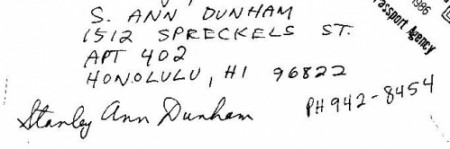 S. ANN DUNHAM
1512 SPRECKELS ST.
APT 402
HONOLULU, HI 96822
Stanley Ann Dunham
PH 942-8454
1986
Passport Agency